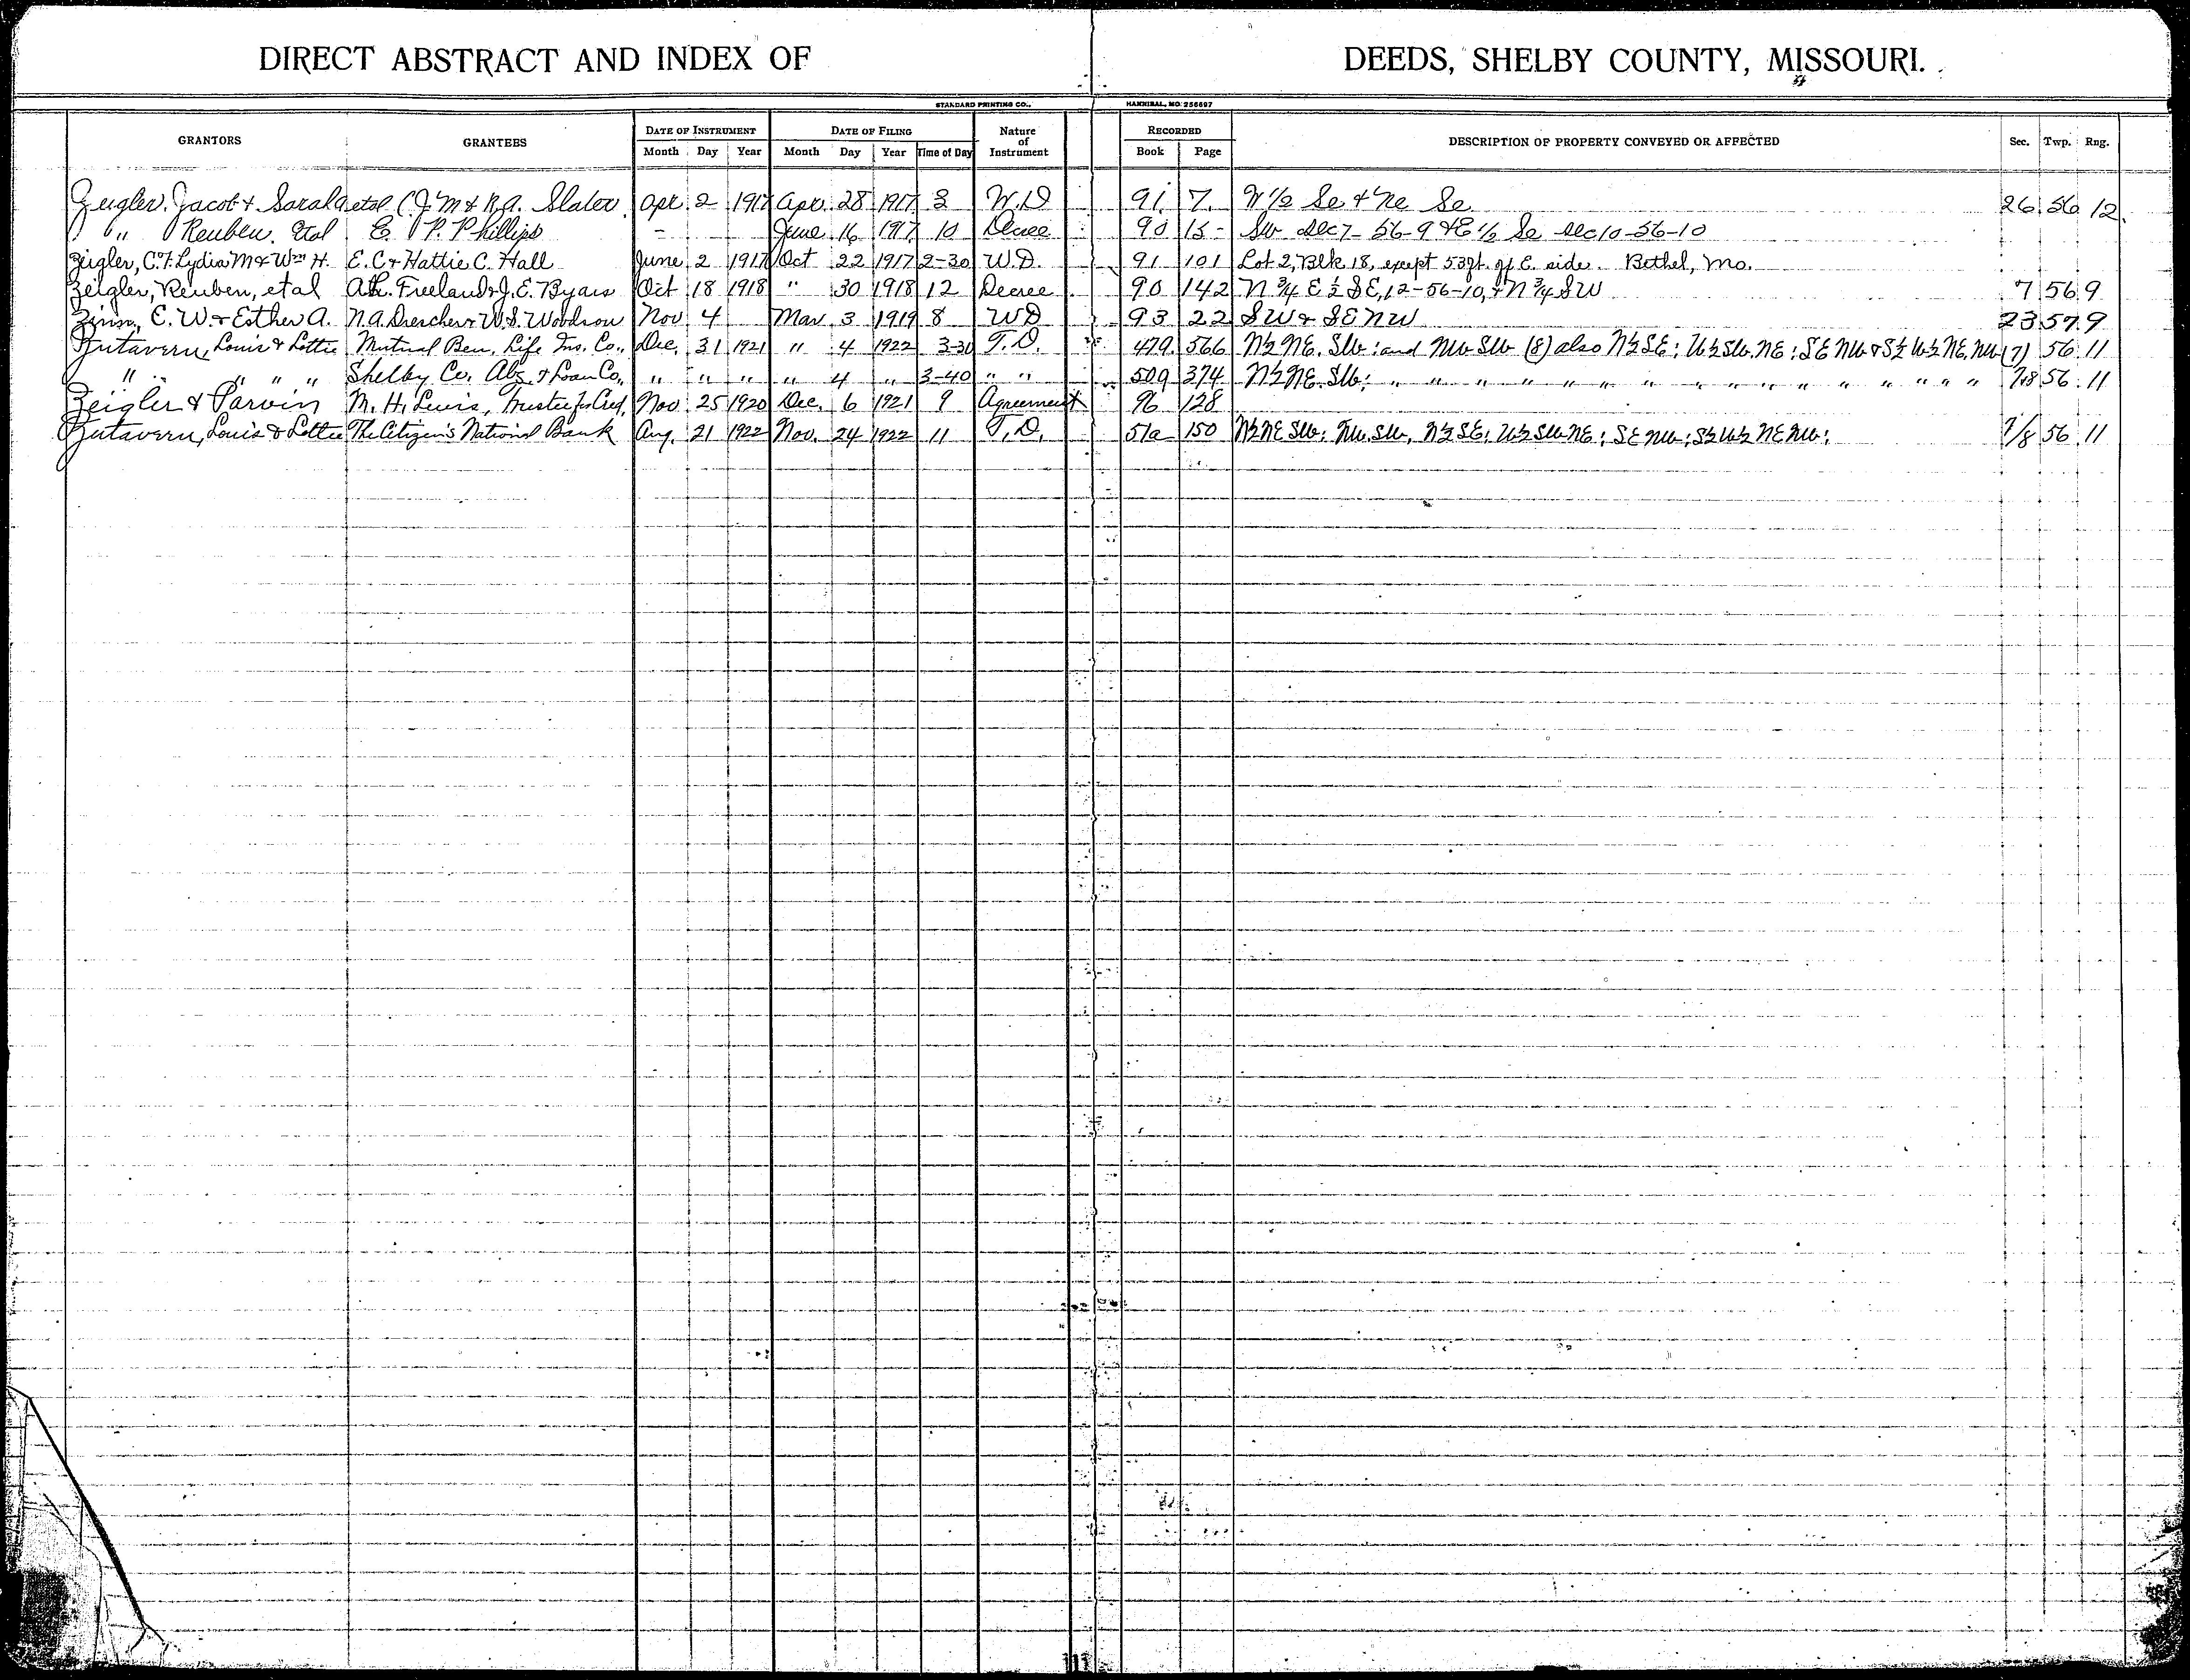 DIRECT ABSTRACT AND INDEX OF DEEDS, SHELBY COUNTY, MISSOURI.
STANDARD PRINTING CO., HANNIBAL, MO. 256697
GRANTORS GRANTEES DATE OF INSTRUMENT DATE OF FILING Nature of Instrument RECORDED DESCRIPTION OF PROPERTY CONVEYED OR AFFECTED Sec. Twp. Rng.
Month Day Year Month Day Year Time of Day Book Page
Zeigler, Jacob & Sarah A etal J. M & R. A. Slater Apr 2 1917 Apr. 28 1917 3 W.D 91 7 W 1/2 Se & Ne Se 26 56 12
" Reuben. Etal E. P. Phillips - June 16 1917 10 Decree 90 15 - Sw Sec 7- 56-9 & E 1/2 Se Sec 10-56-10
Zeigler, C.F. Lydia M & Wm H. E. C. & Hattie C. Hall June 2 1917 Oct 22 1917 2-30 W.D. 91 101 Lot 2, Blk 18, except 53 ft. off E. side. Bethel, Mo.
Zeigler, Reuben, etal A.L. Freeland & J. E. Byars Oct 18 1918 " 30 1918 12 Decree 90 142 N 3/4 E 1/2 SE, 12-56-10, & N 3/4 SW 7 56 9
Zinn, E. W. & Esther A. N. A. Drescher & W. S. Woodson Nov 4 Mar 3 1919 8 WD 93 22 SW & SE NW 23 57 9
Zutavern, Louis & Lottie Mutual Ben. Life Ins. Co., Dec. 31 1921 " 4 1922 3-30 T.D. 479 566 N½ NE. SW: and NW SW (8) also N½ SE; W½ SW. NE; SE NW & S½ W½ NE. NW (7) 56 11
" " " " " Shelby Co. Abs. & Loan Co., " " " " 4 " 3-40 " " 509 374 N½ NE. SW; " " " " " " " " " " " " " " " 7&8 56 11
Zeigler & Parvin M. H. Lewis, Trustee for Cred. Nov 25 1920 Dec. 6 1921 9 Agreement 96 128
Zutavern, Louis & Lottie The Citizen's National Bank Aug. 21 1922 Nov. 24 1922 11 T.D. 51a 150 N½ NE SW; NW. SW, N½ SE; W½ SW NE; SE NW; S½ W½ NE NW; 7/8 56 11